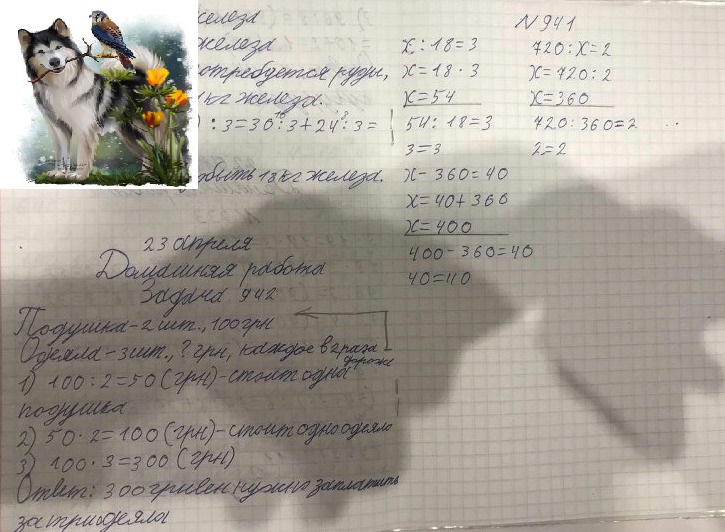 железа
железа
отребуется руды,
1 кг железа.
) : 3 = 30 : 3 + 24 : 3 =
10 8
обыть 18 кг железа.
23 апреля
Домашняя работа
Задача 942
Подушка - 2 шт., 100 грн
Одеяла - 3 шт., ? грн, каждое в 2 раза
дороже
1) 100 : 2 = 50 (грн) - стоит одна
подушка
2) 50 · 2 = 100 (грн) - стоит одно одеяло
3) 100 · 3 = 300 (грн)
Ответ: 300 гривен нужно заплатить
за три одеяла
N 941
x : 18 = 3
x = 18 · 3
x = 54
54 : 18 = 3
3 = 3
x - 360 = 40
x = 40 + 360
x = 400
400 - 360 = 40
40 = 40
720 : x = 2
x = 720 : 2
x = 360
720 : 360 = 2
2 = 2